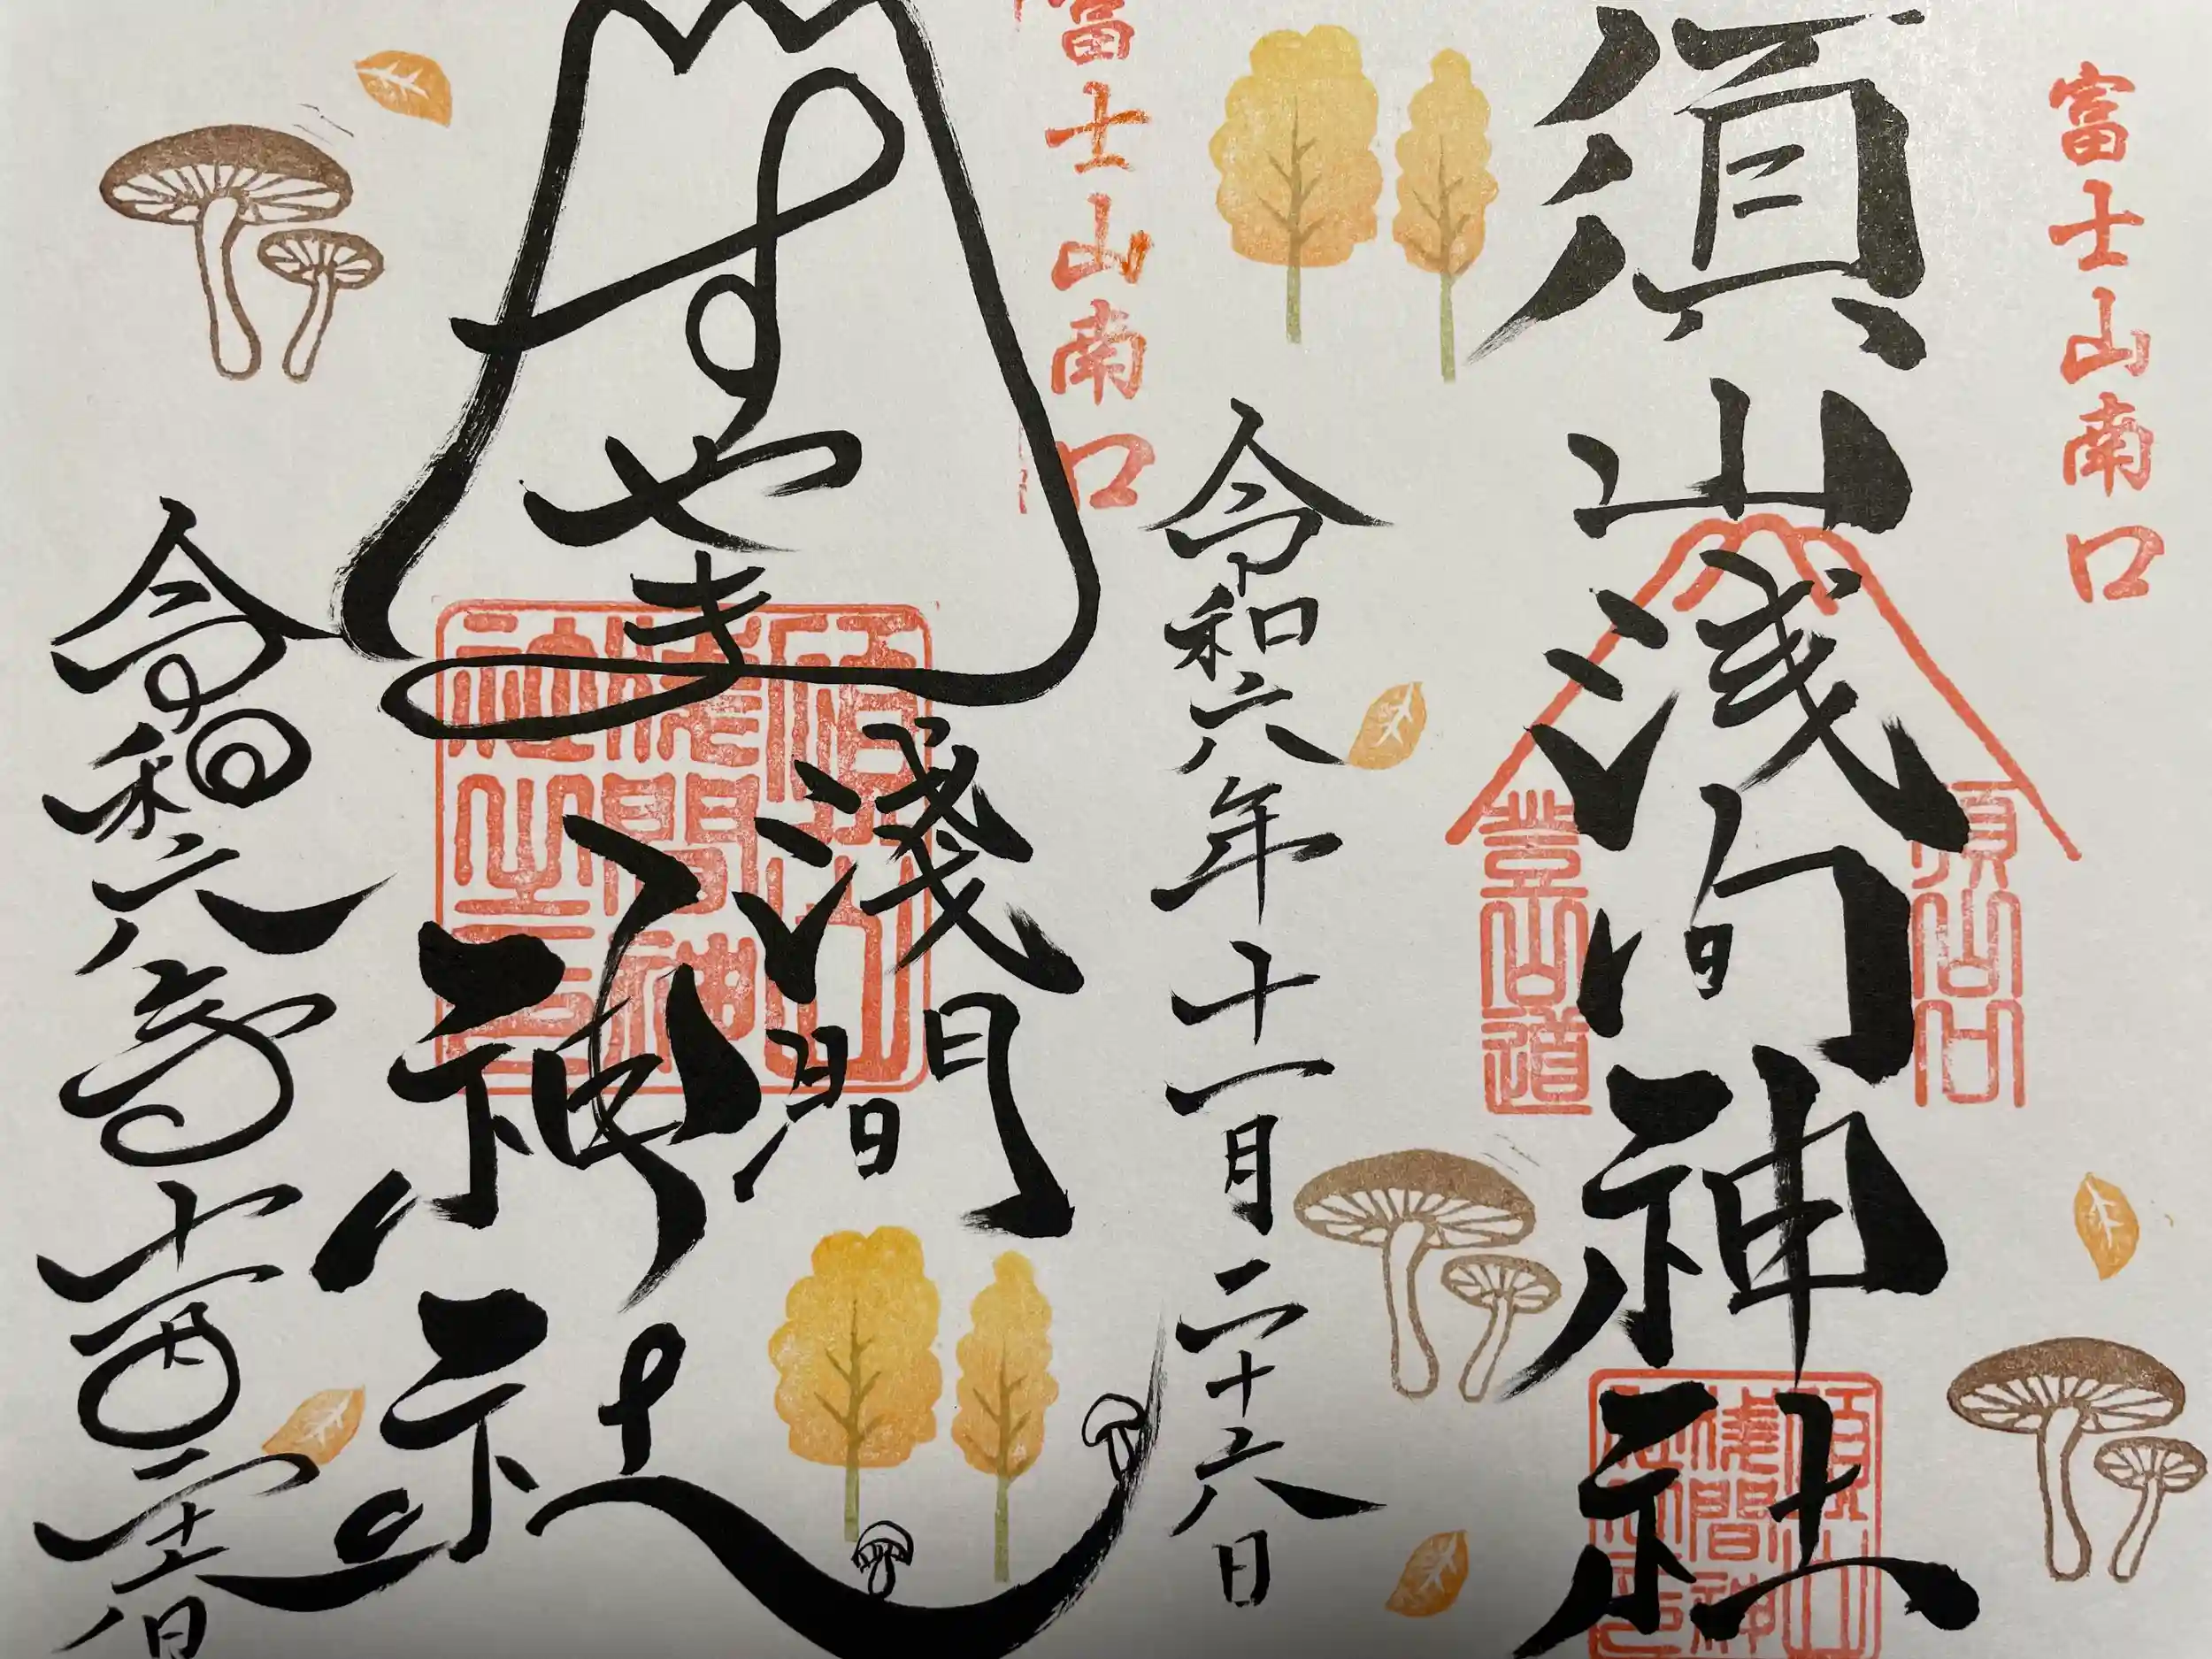 富士山南口
須山浅间神社
須山口
登山道
須山浅間神社之印
令和六年十一月二十六日
富士山南口
すやま
淺間神社
須山浅間神社之印
令和六年十一月二十六日